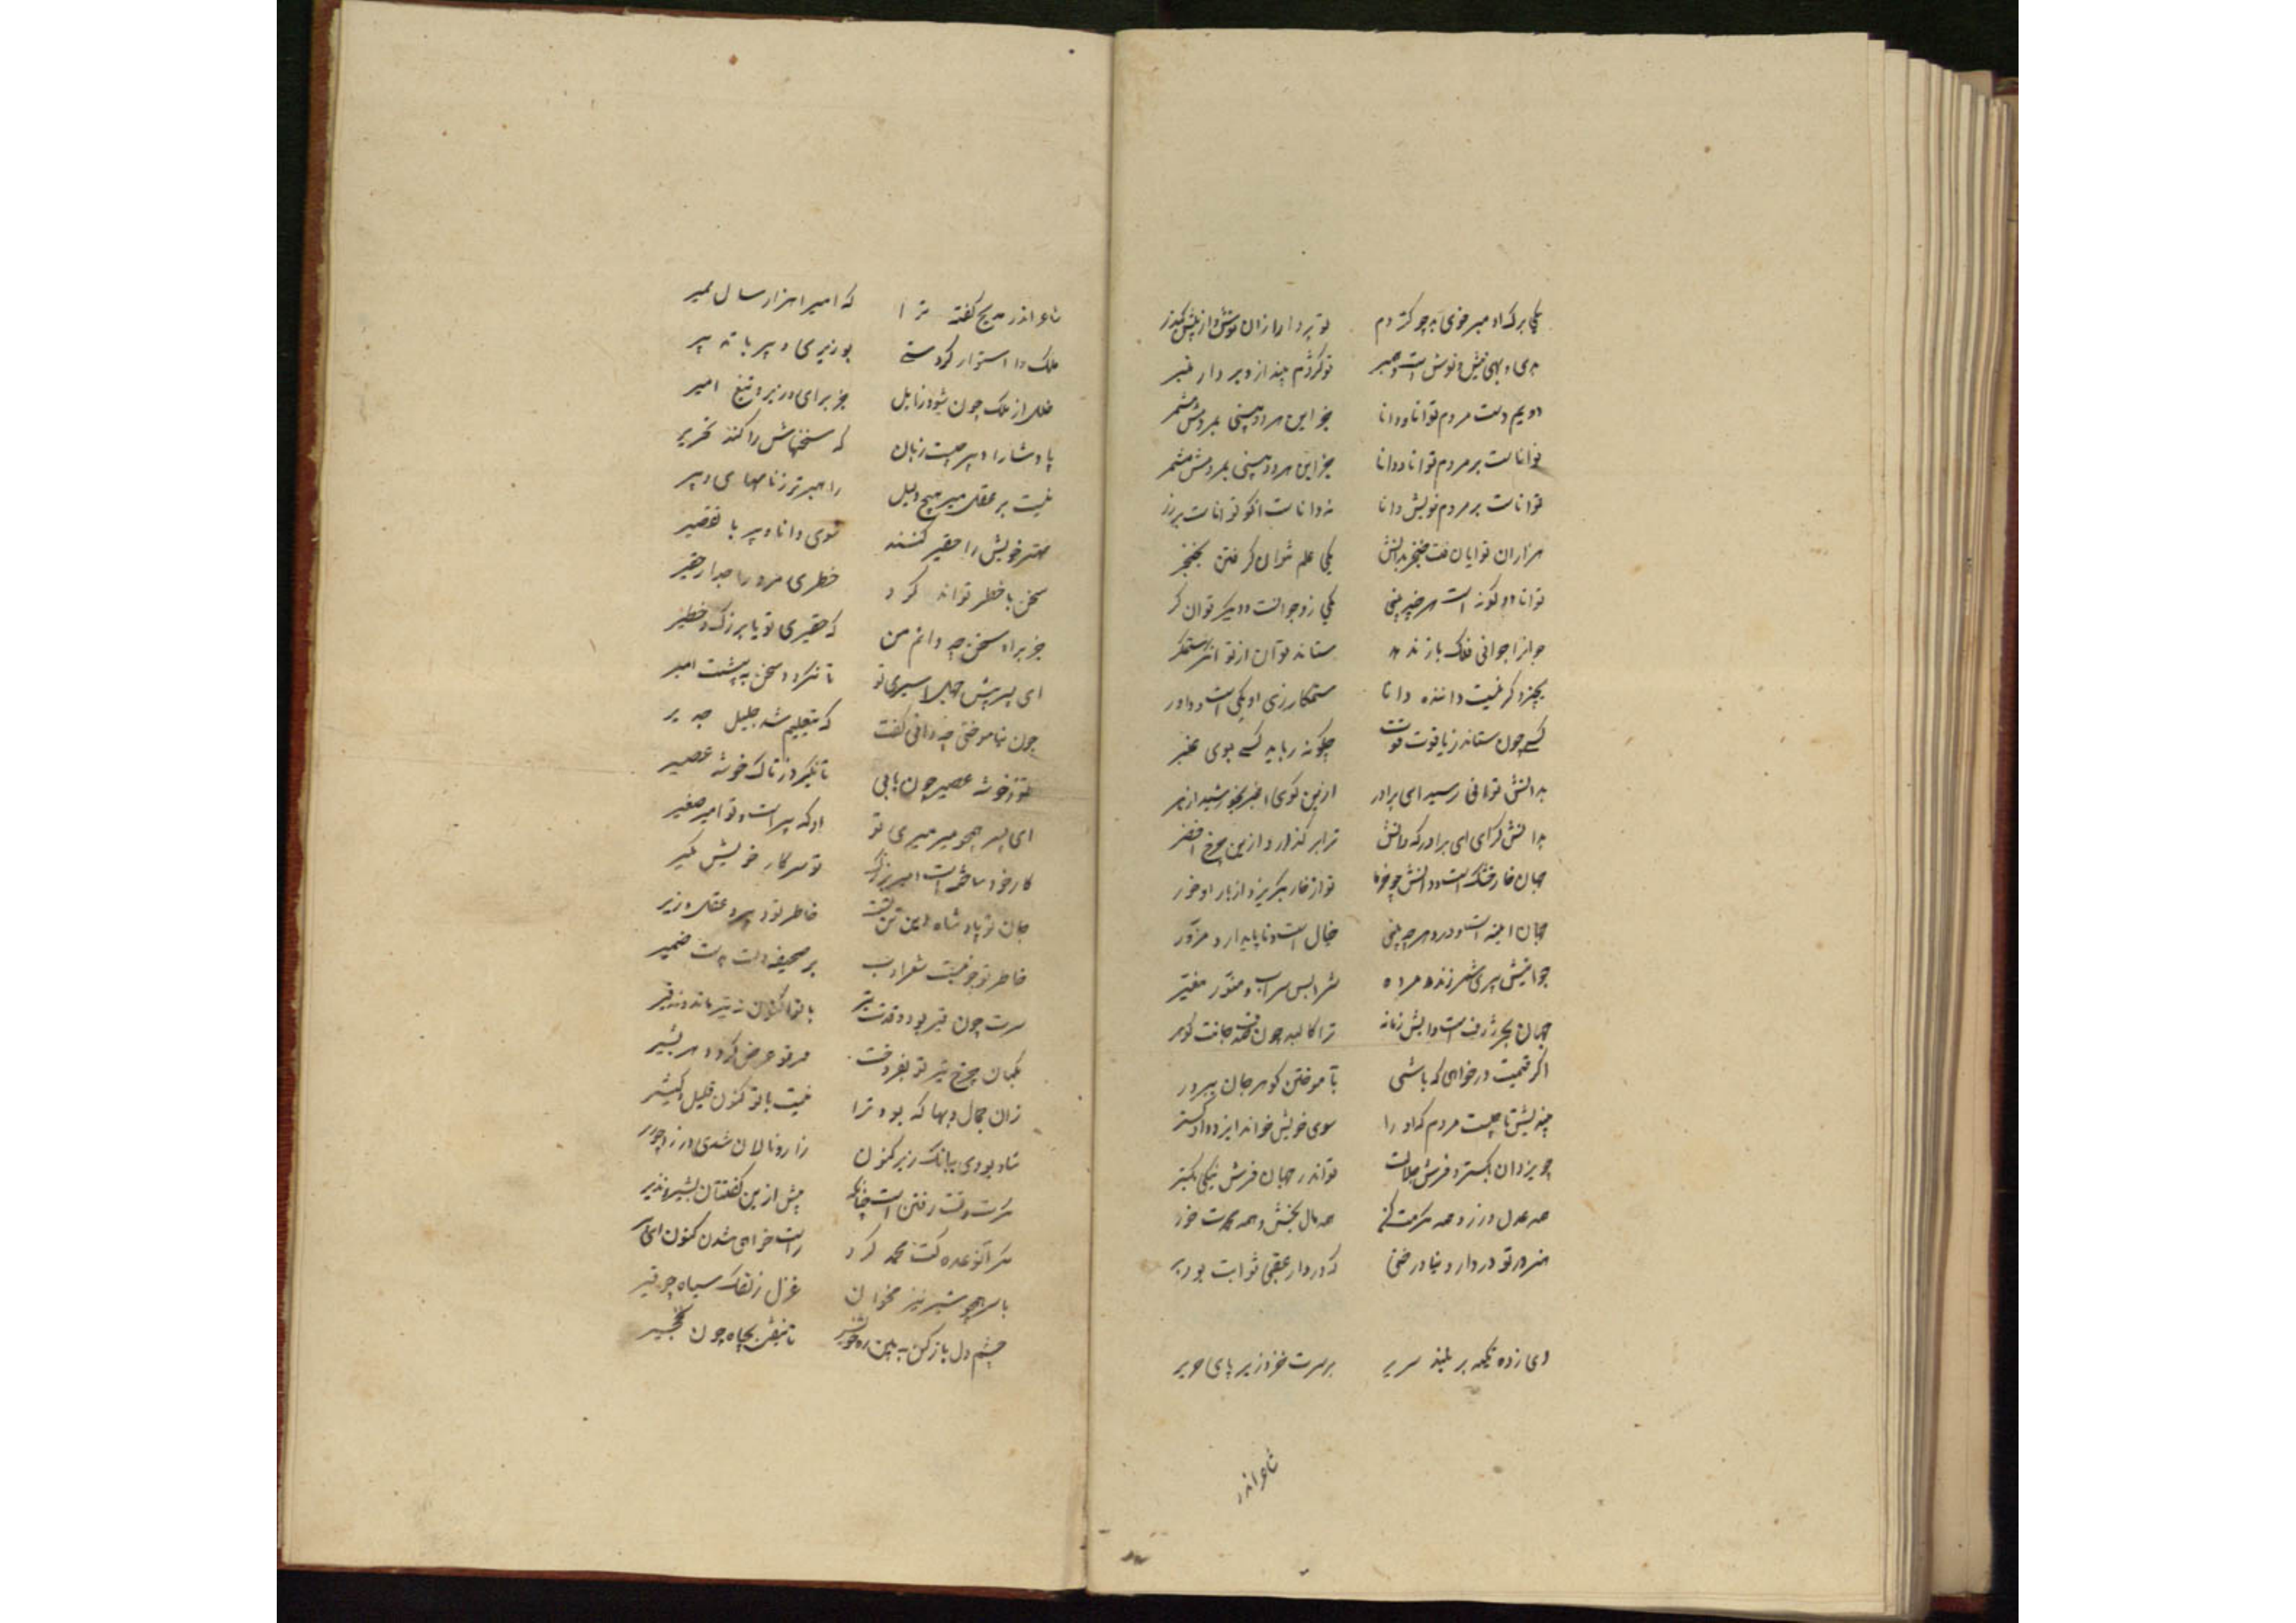 یکی برک او مبر خوی بد چو کژدم تو بردار ازان نوش و از نیش بگذر
بدی و بهی نیش و نوش است همبر تو کژدم بینداز و بردار عنبر
دویم دست مردم توانا و دانا جز این هر دو بینی بمردمش مشمر
توانا ست بر مردم توانا و دانا جز این هر دو بینی بمردمش مشمر
توانا ست بر مردم خویش دانا نه دانا ست انکو توانا ست برزر
هزاران توان یافت خنجر بدانش یکی علم نتوان گرفتن بخنجر
توانا دو گونه است هر چه بینی یکی زو جوانست و دیگر توانگر
جوانرا جوانی فلک باز ستاند توان از توانگر ستمگر
بچیز دگر نیست داننده دانا ستمکار زی او یکی است و داور
کسی چون ستاند ز یاقوت قوت چگونه رباید کسی بوی عنبر
بدانش توانی رسید ای برادر ازین گوی اغبر بخورشید ازهر
بدانش گرای ای برادر که دانش ترا بر گذارد ازین چرخ اخضر
جهان خار خشک است و دانش چو خرما تو از خار بگریز و از بار او خور
جهان اینه است و درو هر چه بینی خیال است و ناپایدار و مزور
جوانیش پیری شمر زنده مرده شرابش سراب و منور مغبر
جهان بحر ژرف است و آبش زمانه ترا کالبد چون صدف جانت گوهر
اگر قیمت در خواهی که باشی بآموختن گوهر جان بپرور
بیندیش تا چیست مردم که او را سوی خویش خواند ایزد دادگستر
چو یزدان بگسترد فرش جلالت تو اندر جهان فرش نیکی بگستر
همه عدل ورز و همه مکرمت کن همه مال بخش و همه محمدت خور
هنرور تو در دار دنیا درختی که در دار عقبی ثوابت بود بر
ای زده تکیه بر بلند سریر بر سرت خز و زیر پای حریر
شاعر اندر
شاعر اندر مدیح گفته ترا که امیرا هزار سال بمیر
ملک را استوار کردستی بوزیری دبیر با تدبیر
خلل از ملک چون شود زایل جز برای وزیر و تیغ امیر
پادشا را دبیر چیست زبان که سخنهاش را کند تحریر
نیست بر عقل میر هیچ دلیل راهبر تر ز نامهای دبیر
مهتر خویش را حقیر کنند سوی دانا دبیر با تقصیر
سخن با خطر تواند کرد خطری مرد را جدا ز حقیر
جز براه سخن چه دانم من که حقیری تو یا بزرگ و خطیر
ای پسر پیش جهل اسیری تو تا نگردد سخن به پیشت اسیر
چون نیاموختی چه دانی گفت که بتعلیم شد جلیل جریر
تو ز خوشه عصیر چون یابی تا نگیرد ز تاک خوشه عصیر
ای پسر همچو میر میری تو او که پیر است و تو امیر صغیر
کار خود ساخته است امیر بزرگ تو سر کار خویش گیر
جان تو پادشاه این تن تست خاطر تو دبیر و عقل وزیر
خاطر تو نبشت شعر و ادب بر صحیفه دلت بدست ضمیر
سرت چون قیر بود و قدت تیر با تو اکنون نه تیر ماند و نه قیر
یکمان چرخ تیر تو بفروخت
زان جمال و بها که بود ترا نیست با تو کنون قلیل و کثیر
شاد بودی ببانگ زیر کنون زار و نالان شدی و زرد چو زیر
گرت وقت رفتن است چنانک پیش ازین گفتت آن بشیر نذیر
راست خواهی شدن کنون
با سر همچو شیر نیز مخوان غزل زلفک سیاه چو قیر
چشم دل باز کن ببین ره خویش تا نیفتی بچاه چون نخچیر